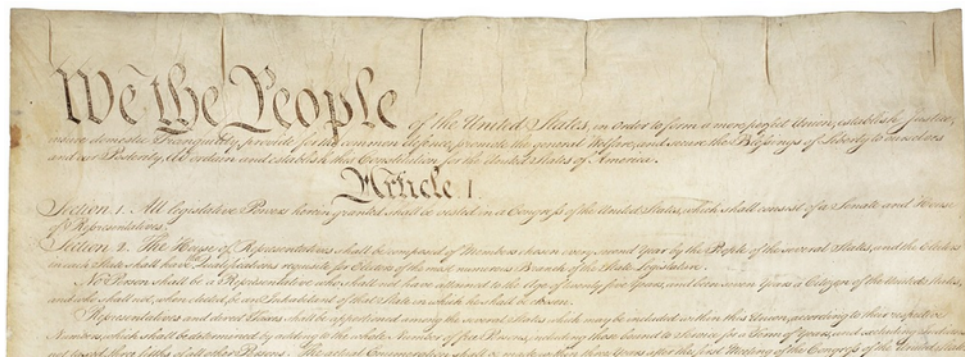 We the People of the United States, in Order to form a more perfect Union, establish Justice,
insure domestic Tranquility, provide for the common defence, promote the general Welfare, and secure the Blessings of Liberty to ourselves
and our Posterity, do ordain and establish this Constitution for the United States of America.
Article I.
Section 1. All legislative Powers herein granted shall be vested in a Congress of the United States, which shall consist of a Senate and House
of Representatives.
Section 2. The House of Representatives shall be composed of Members chosen every second Year by the People of the several States, and the Electors
in each State shall have the Qualifications requisite for Electors of the most numerous Branch of the State Legislature.
No Person shall be a Representative who shall not have attained to the Age of twenty five Years, and been seven Years a Citizen of the United States,
and who shall not, when elected, be an Inhabitant of that State in which he shall be chosen.
Representatives and direct Taxes shall be apportioned among the several States which may be included within this Union, according to their respective
Numbers, which shall be determined by adding to the whole Number of free Persons, including those bound to Service for a Term of Years, and excluding Indians
not taxed, three fifths of all other Persons. The actual Enumeration shall be made within three Years after the first Meeting of the Congress of the United States